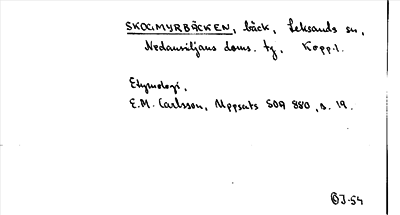 SKOGMYRBÄCKEN, bäck, Leksands sn,
Nedansiljans doms. tg, Kopp.l.
Etymologi.
E.M. Carlsson, Uppsats SOA 880, s. 19.
BJ-54